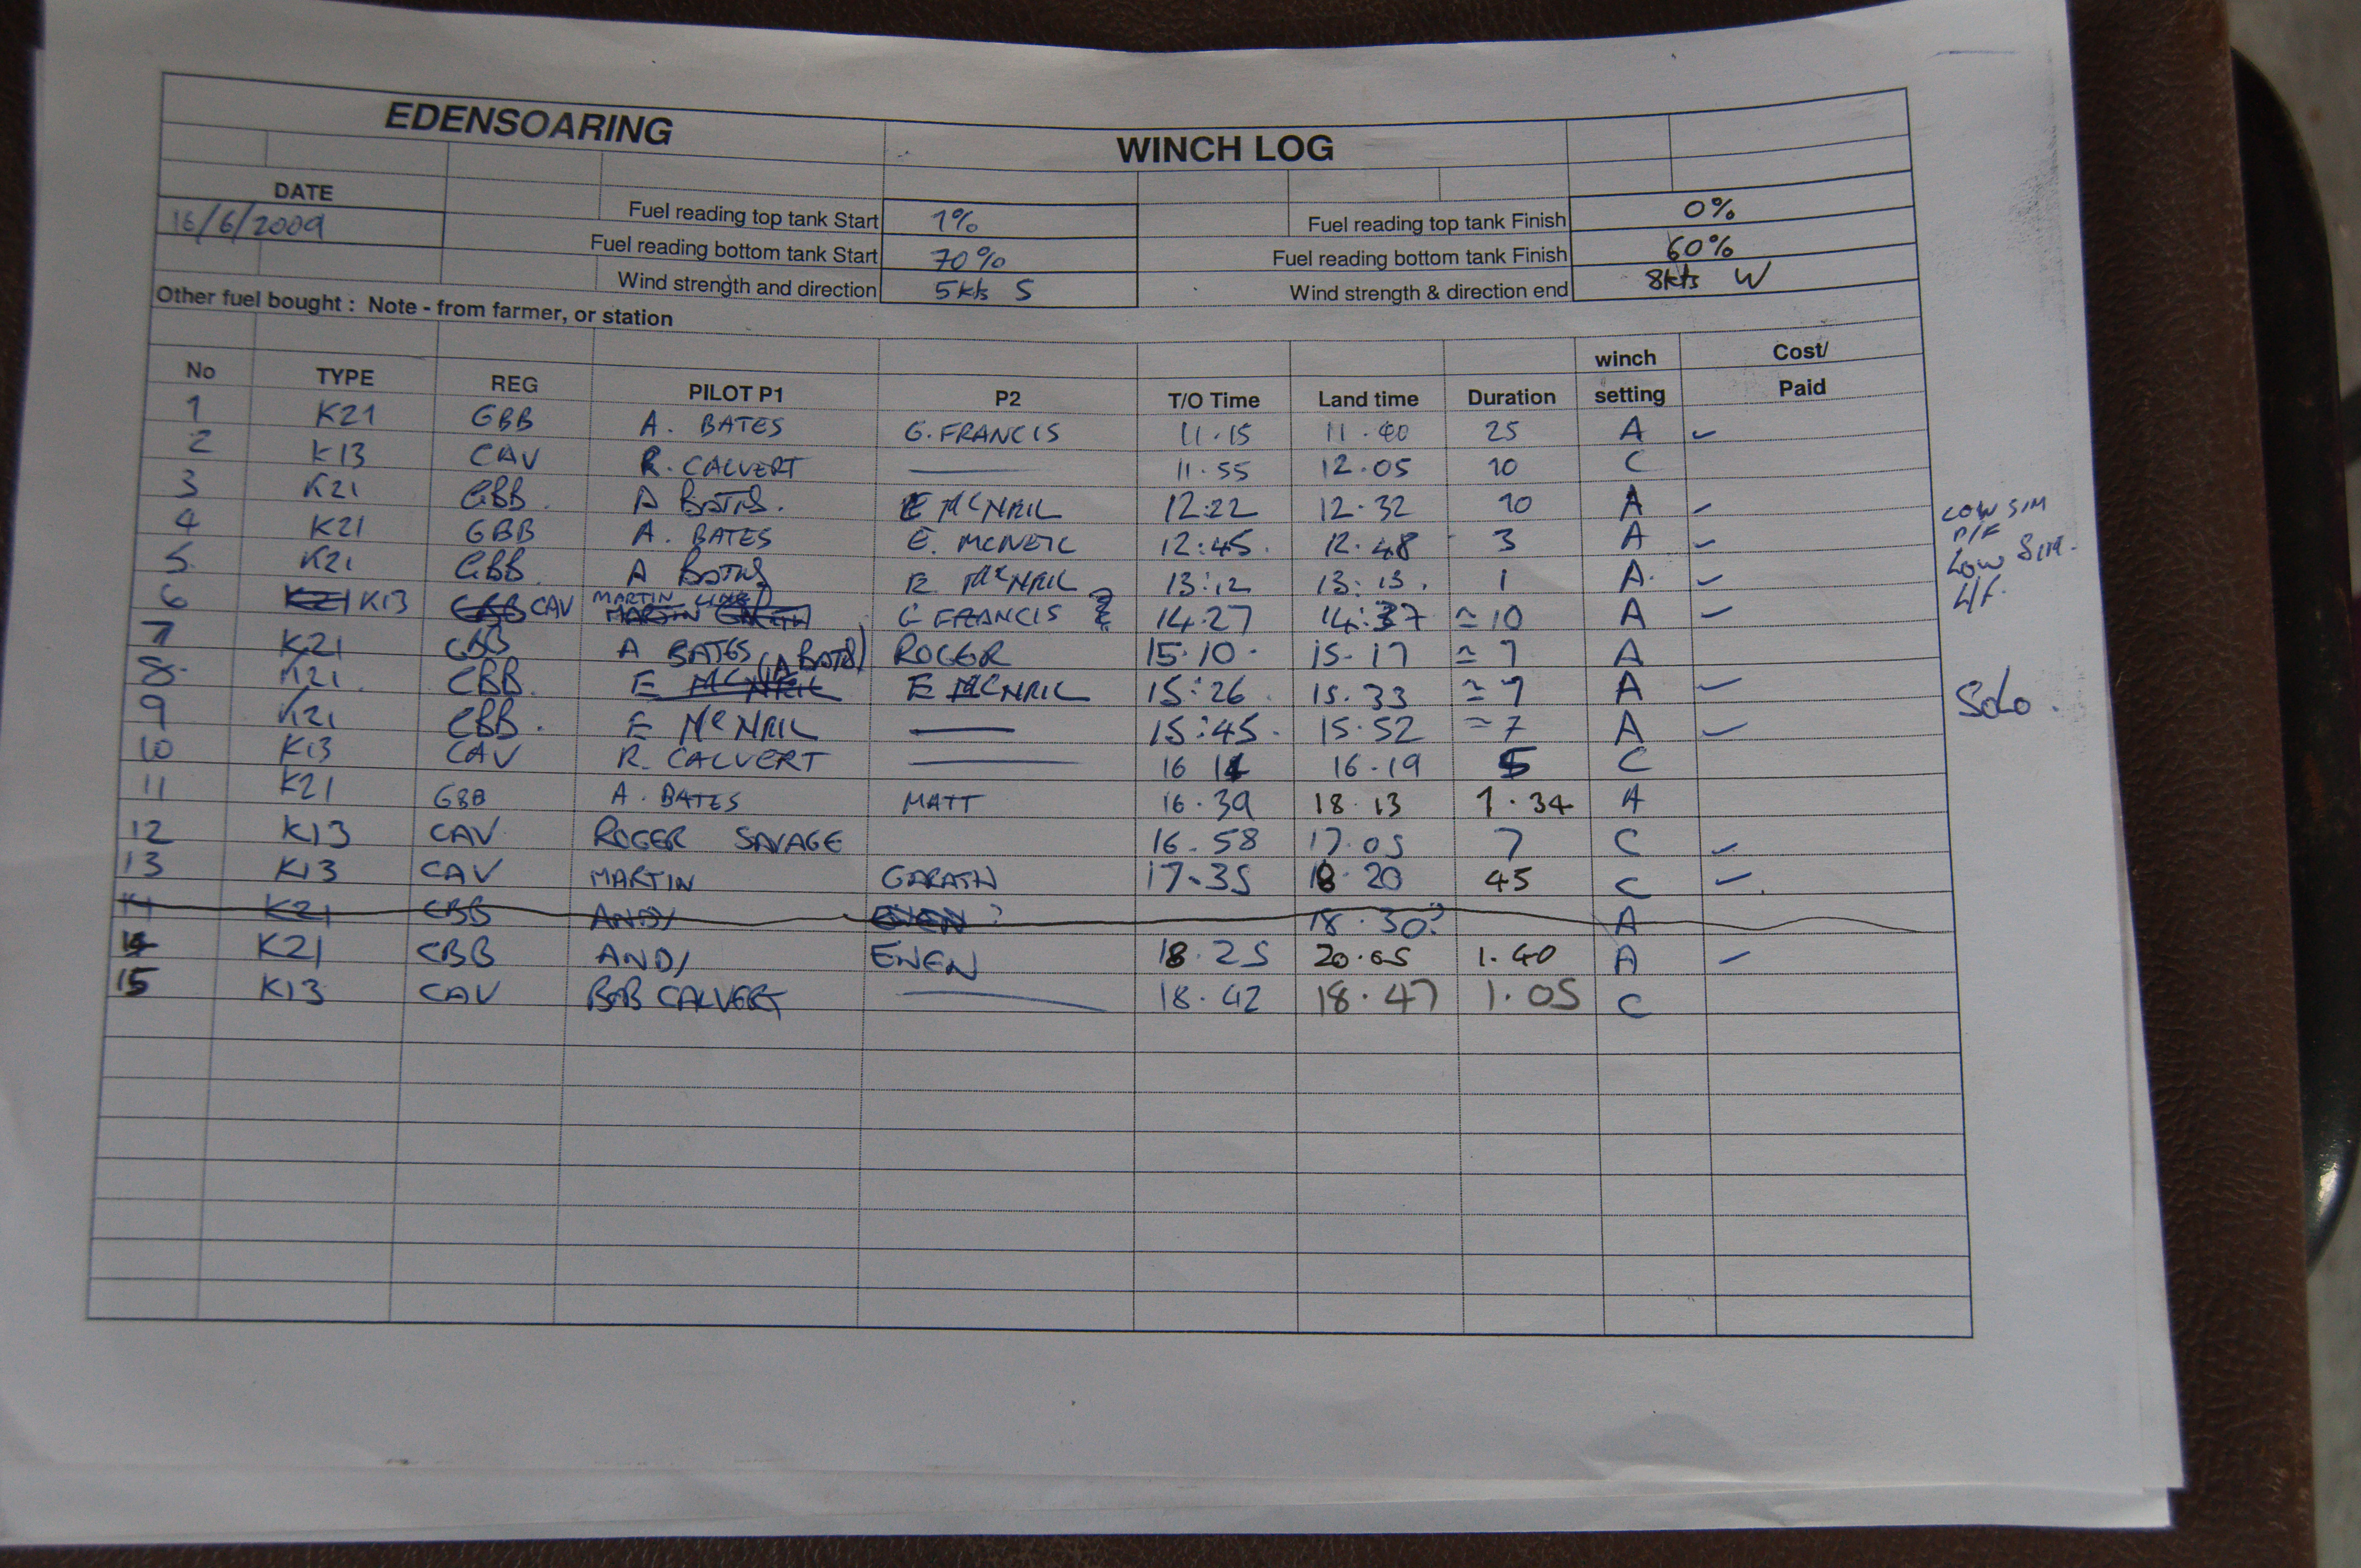 EDENSOARING WINCH LOG
DATE
16/6/2009
Fuel reading top tank Start 1% Fuel reading top tank Finish 0%
Fuel reading bottom tank Start 70% Fuel reading bottom tank Finish 60%
Wind strength and direction 5kts S Wind strength & direction end 8kts W
Other fuel bought : Note - from farmer, or station
No TYPE REG PILOT P1 P2 T/O Time Land time Duration winch setting Cost/ Paid
1 K21 GBB A. BATES G. FRANCIS 11.15 11.40 25 A ✓
2 K13 CAV R. CALVERT — 11.55 12.05 10 C
3 K21 GBB. A BATES. E MCNEIL 12:22 12.32 10 A ✓
4 K21 GBB A. BATES E. MCNEIL 12:45. 12.48 3 A ✓ LOW SIM
5. K21 GBB. A BATES E. McNEIL 13:12 13:13. 1 A. ✓ Low Sim.
6 K21 K13 GBB CAV MARTIN MARTIN G FRANCIS 14.27 14:37 ≃ 10 A ✓
7 K21 GBB A BATES ROGER 15.10. 15-17 ≃ 7 A
8. K21. GBB. (A BATES) E MCNEIL E MCNEIL 15:26. 15.33 ≃ 7 A ✓
9 K21 GBB. E McNEIL — 15:45. 15.52 ≃ 7 A ✓ Solo.
10 K13 CAV R. CALVERT — 16 14 16-19 5 C
11 K21 GBB A. BATES MATT 16.39 18.13 1.34 A
12 K13 CAV ROGER SAVAGE 16.58 17.05 7 C ✓
13 K13 CAV MARTIN GARATH 17.35 18.20 45 C ✓
14 K21 GBB ANDY EWEN ? 18.30? A
14 K21 GBB ANDY EWEN 18.25 20.05 1.40 A ✓
15 K13 CAV BOB CALVERT — 18.42 18.47 1.05 C